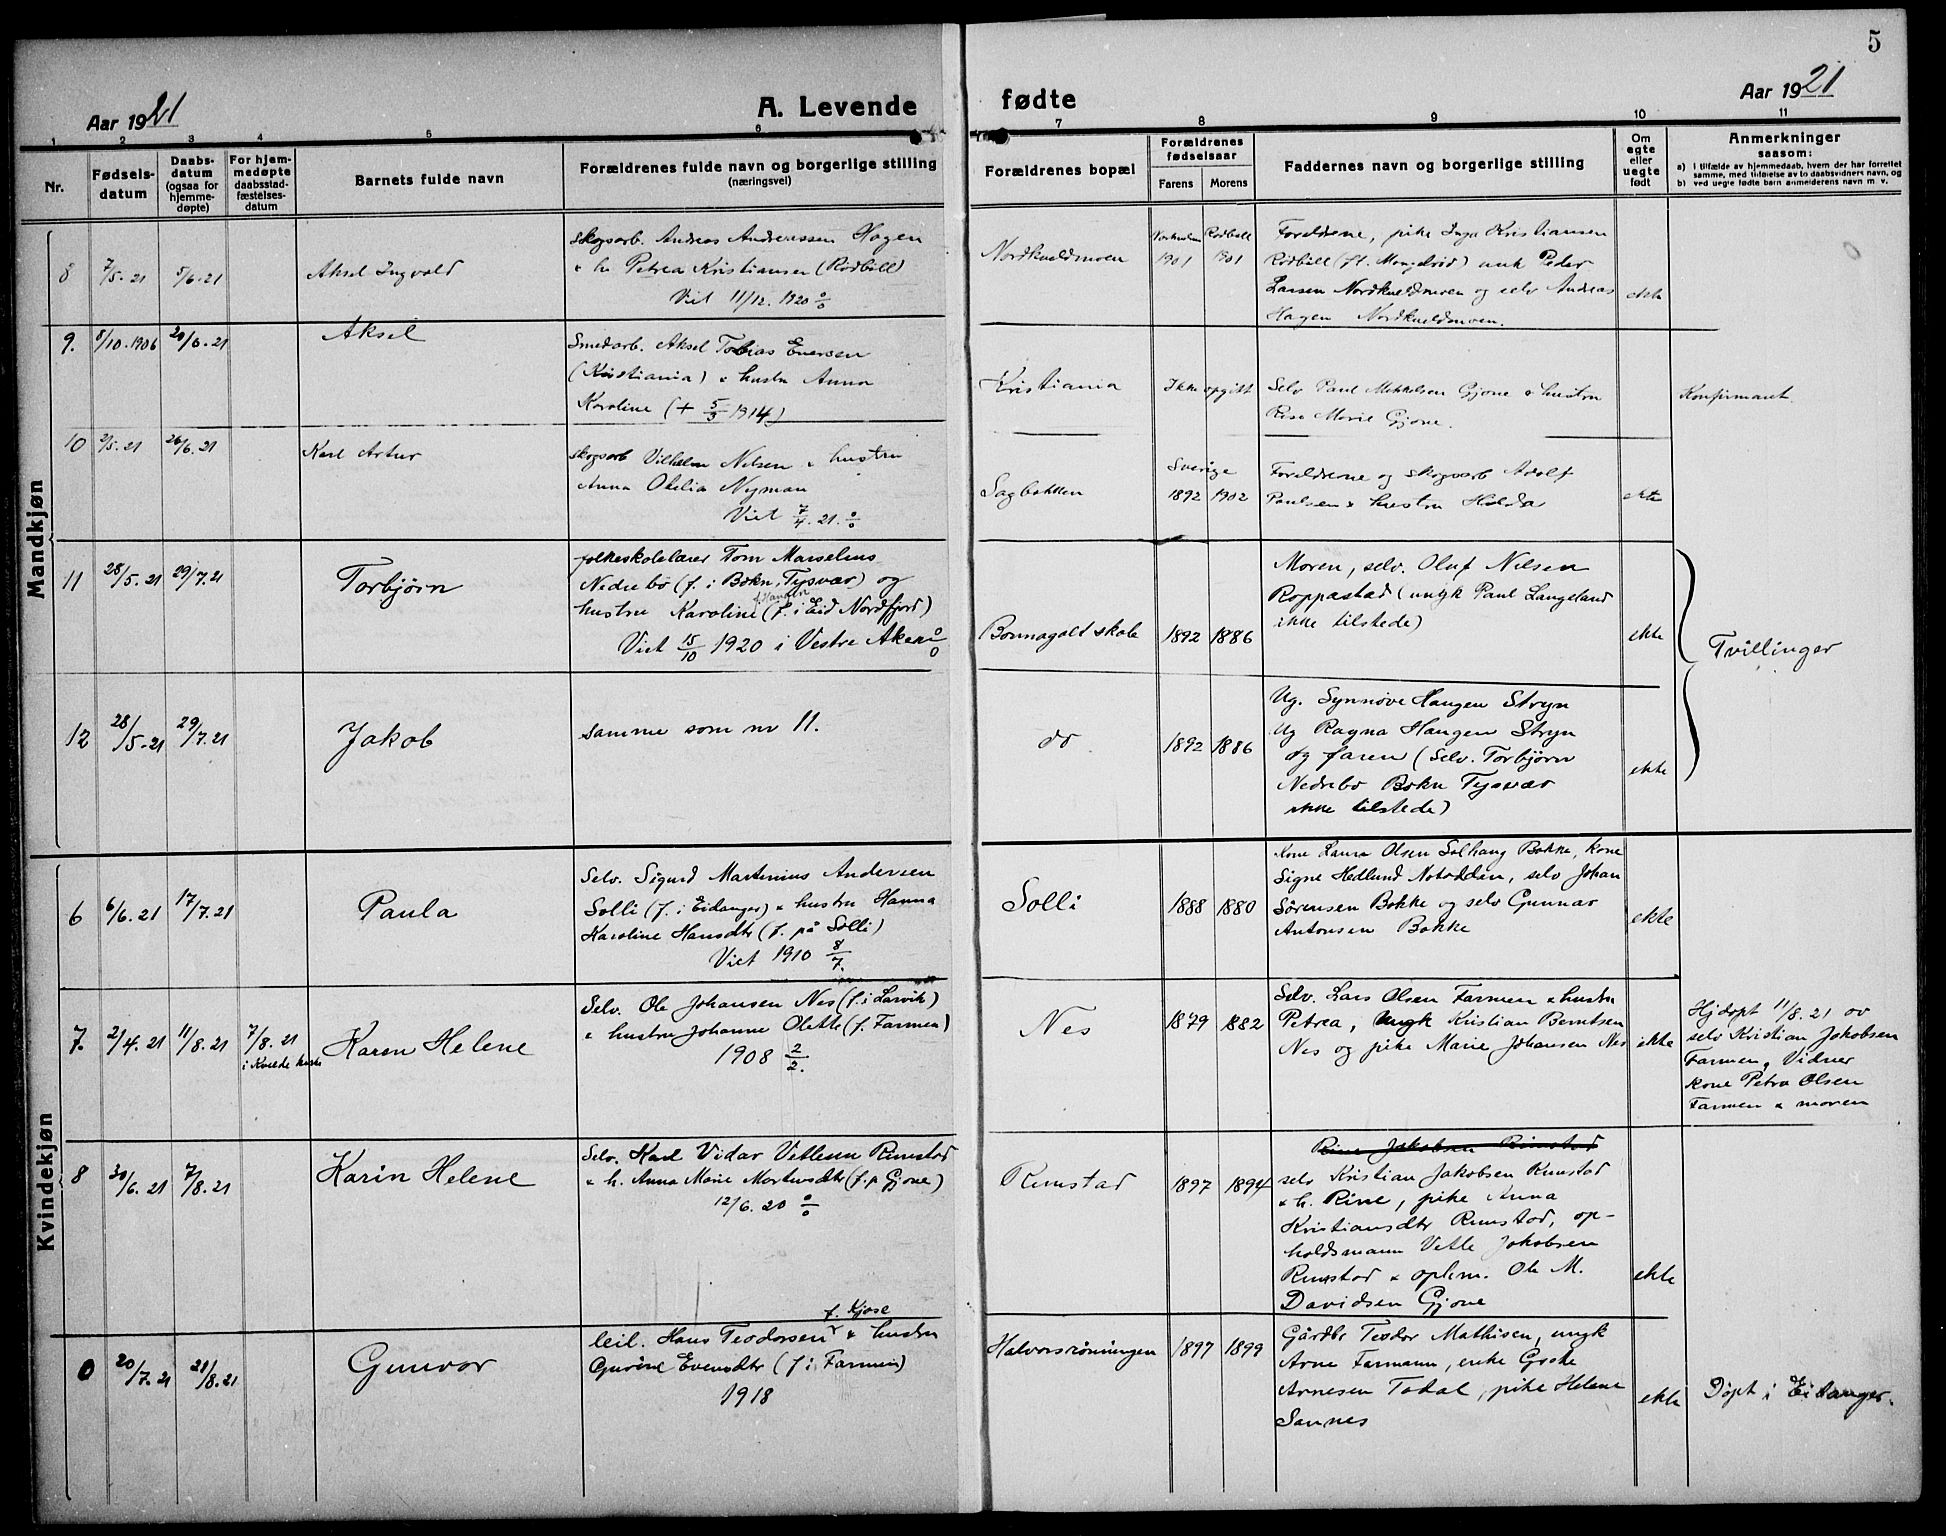 5
Aar 1921
A. Levende fødte
Aar 1921
1 2 3 4 5 6 7 8 9 10 11
Nr.
Fødsels-
datum
Daabs-
datum
(ogsaa for
hjemme-
døpte)
For hjem-
medøpte
daabsstad-
fæstelses-
datum
Barnets fulde navn
Forældrenes fulde navn og borgerlige stilling
(næringsvei)
Forældrenes bopæl
Forældrenes
fødselsaar
Farens Morens
Faddernes navn og borgerlige stilling
Om
egte
eller
uegte
født
Anmerkninger
saasom:
a) i tilfælde av hjemmedaab, hvem der har forrettet
samme, med tilføielse av to daabsvidners navn, og
b) ved uegte fødte barn anmelderens navn m. v.
Mandkjøn
8 7/5. 21 5/6. 21 Aksel Ingvald
Skogsarb. Andreas Andreassen Hagen
& h. Petrea Kristiansen (Rødbøll)
Viet 11/12. 1920 0/0
Nordkveldmoen
1901 1901
Foreldrene, pike Inga Kristiansen
Rødbøll ungk Peder
Larsen Nordkveldmoen og selv Andreas
Hagen Nordkveldmoen.
ekte
9. 8/10. 1906 20/6. 21 Aksel
Smedarb. Aksel Tobias Evensen
(Kristiania) & hustru Anna
Karoline (+ 5/3 1914)
Kristiania
Ikke opgitt
Selv Paul Mikkelsen Gjone & hustru
Marie Gjone.
Konfirmant
10 2/5. 21 26/6. 21 Karl Artur
Skogsarb Vilhelm Nilsen & hustru
Anna Otelia Nyman
Viet 7/4. 21. 0/0
Sagbakken
Sverige
1892 1902
Foreldrene og skogsarb Adolf
Paulsen & hustru Holda
ekte
11 28/5. 21 29/7. 21 Torbjørn
folkeskolelærer Tom Marselius
Nedrebø (f. i Bokn, Tysvær) og
f. Haugen
hustru Karoline (f. i Eid Nordfjord)
Viet 15/10 1920 i Vestre Aker 0/0
Bonnagolt skole
1892 1886
Moren, selv. Oluf Nilsen
Roppestad (ungk Paul Langeland
ikke tilstede)
ekte
Tvillinger
12 28/5. 21 29/7. 21 Jakob
samme som nr 11.
do
1892 1886
Ug. Synnøve Haugen Stryn
Ug Ragna Haugen Stryn
og faren (Selv. Torbjørn
Nedrebø Bokn Tysvær
ikke tilstede)
ekte
Kvindekjøn
6 6/6. 21 17/7. 21 Paula
Selv. Sigurd Martinius Andersen
Solli (f. i Eidanger) & hustru Hanna
Karoline Hansdtr (f. på Solli)
Viet 1910 8/7.
Solli
1888 1880
Kone Laura Olsen Solhaug Bakke, kone
Signe Hedlund Notodden, selv Johan
Sørensen Bakke og selv Gunnar
Antonsen Bakke
ekte
7. 2/4. 21 11/8. 21 7/8. 21
i Kvelde kirke
Karen Helene
Selv. Ole Johansen Nes (f. i Larvik)
& hustru Johanne Olette (f. Farmen)
1908 2/2.
Nes
1879 1882
Selv. Lars Olsen Farmen & hustru
Petrea, Ungk Kristian Berntsen
Nes og pike Marie Johansen Nes
ekte
Hjdøpt 11/8. 21 av
selv Kristian Jakobsen
Farmen, Vidner
kone Petra Olsen
Farmen & moren
8 30/6. 21 7/8. 21 Karin Helene
Selv. Karl Vidar Vetlesen Rimstad
& h. Anna Marie Mortensdtr (f. p Gjone)
12/6. 20 0/0
Rimstad
1897 1894
Rine Jakobsen Rimstad
selv Kristian Jakobsen Rimstad
& h. Rine, pike Anna
Kristiansdtr Rimstad, op-
holdsmann Vetle Jakobsen
Rimstad & Ole M.
Davidsen Gjone
ekte
0 20/7. 21 21/8. 21 Gunvor
f. Kjose
leil. Hans Teodorsen & hustru
Gurine Evensdtr (f. i Farmen)
1918
Halvorsrønningen
1897 1899
Gårdbr Teodor Mathisen, ungk
Arne Farmann, enke
Arnesen Todal, pike Helene
Sannes
ekte
Døpt i Eidanger.